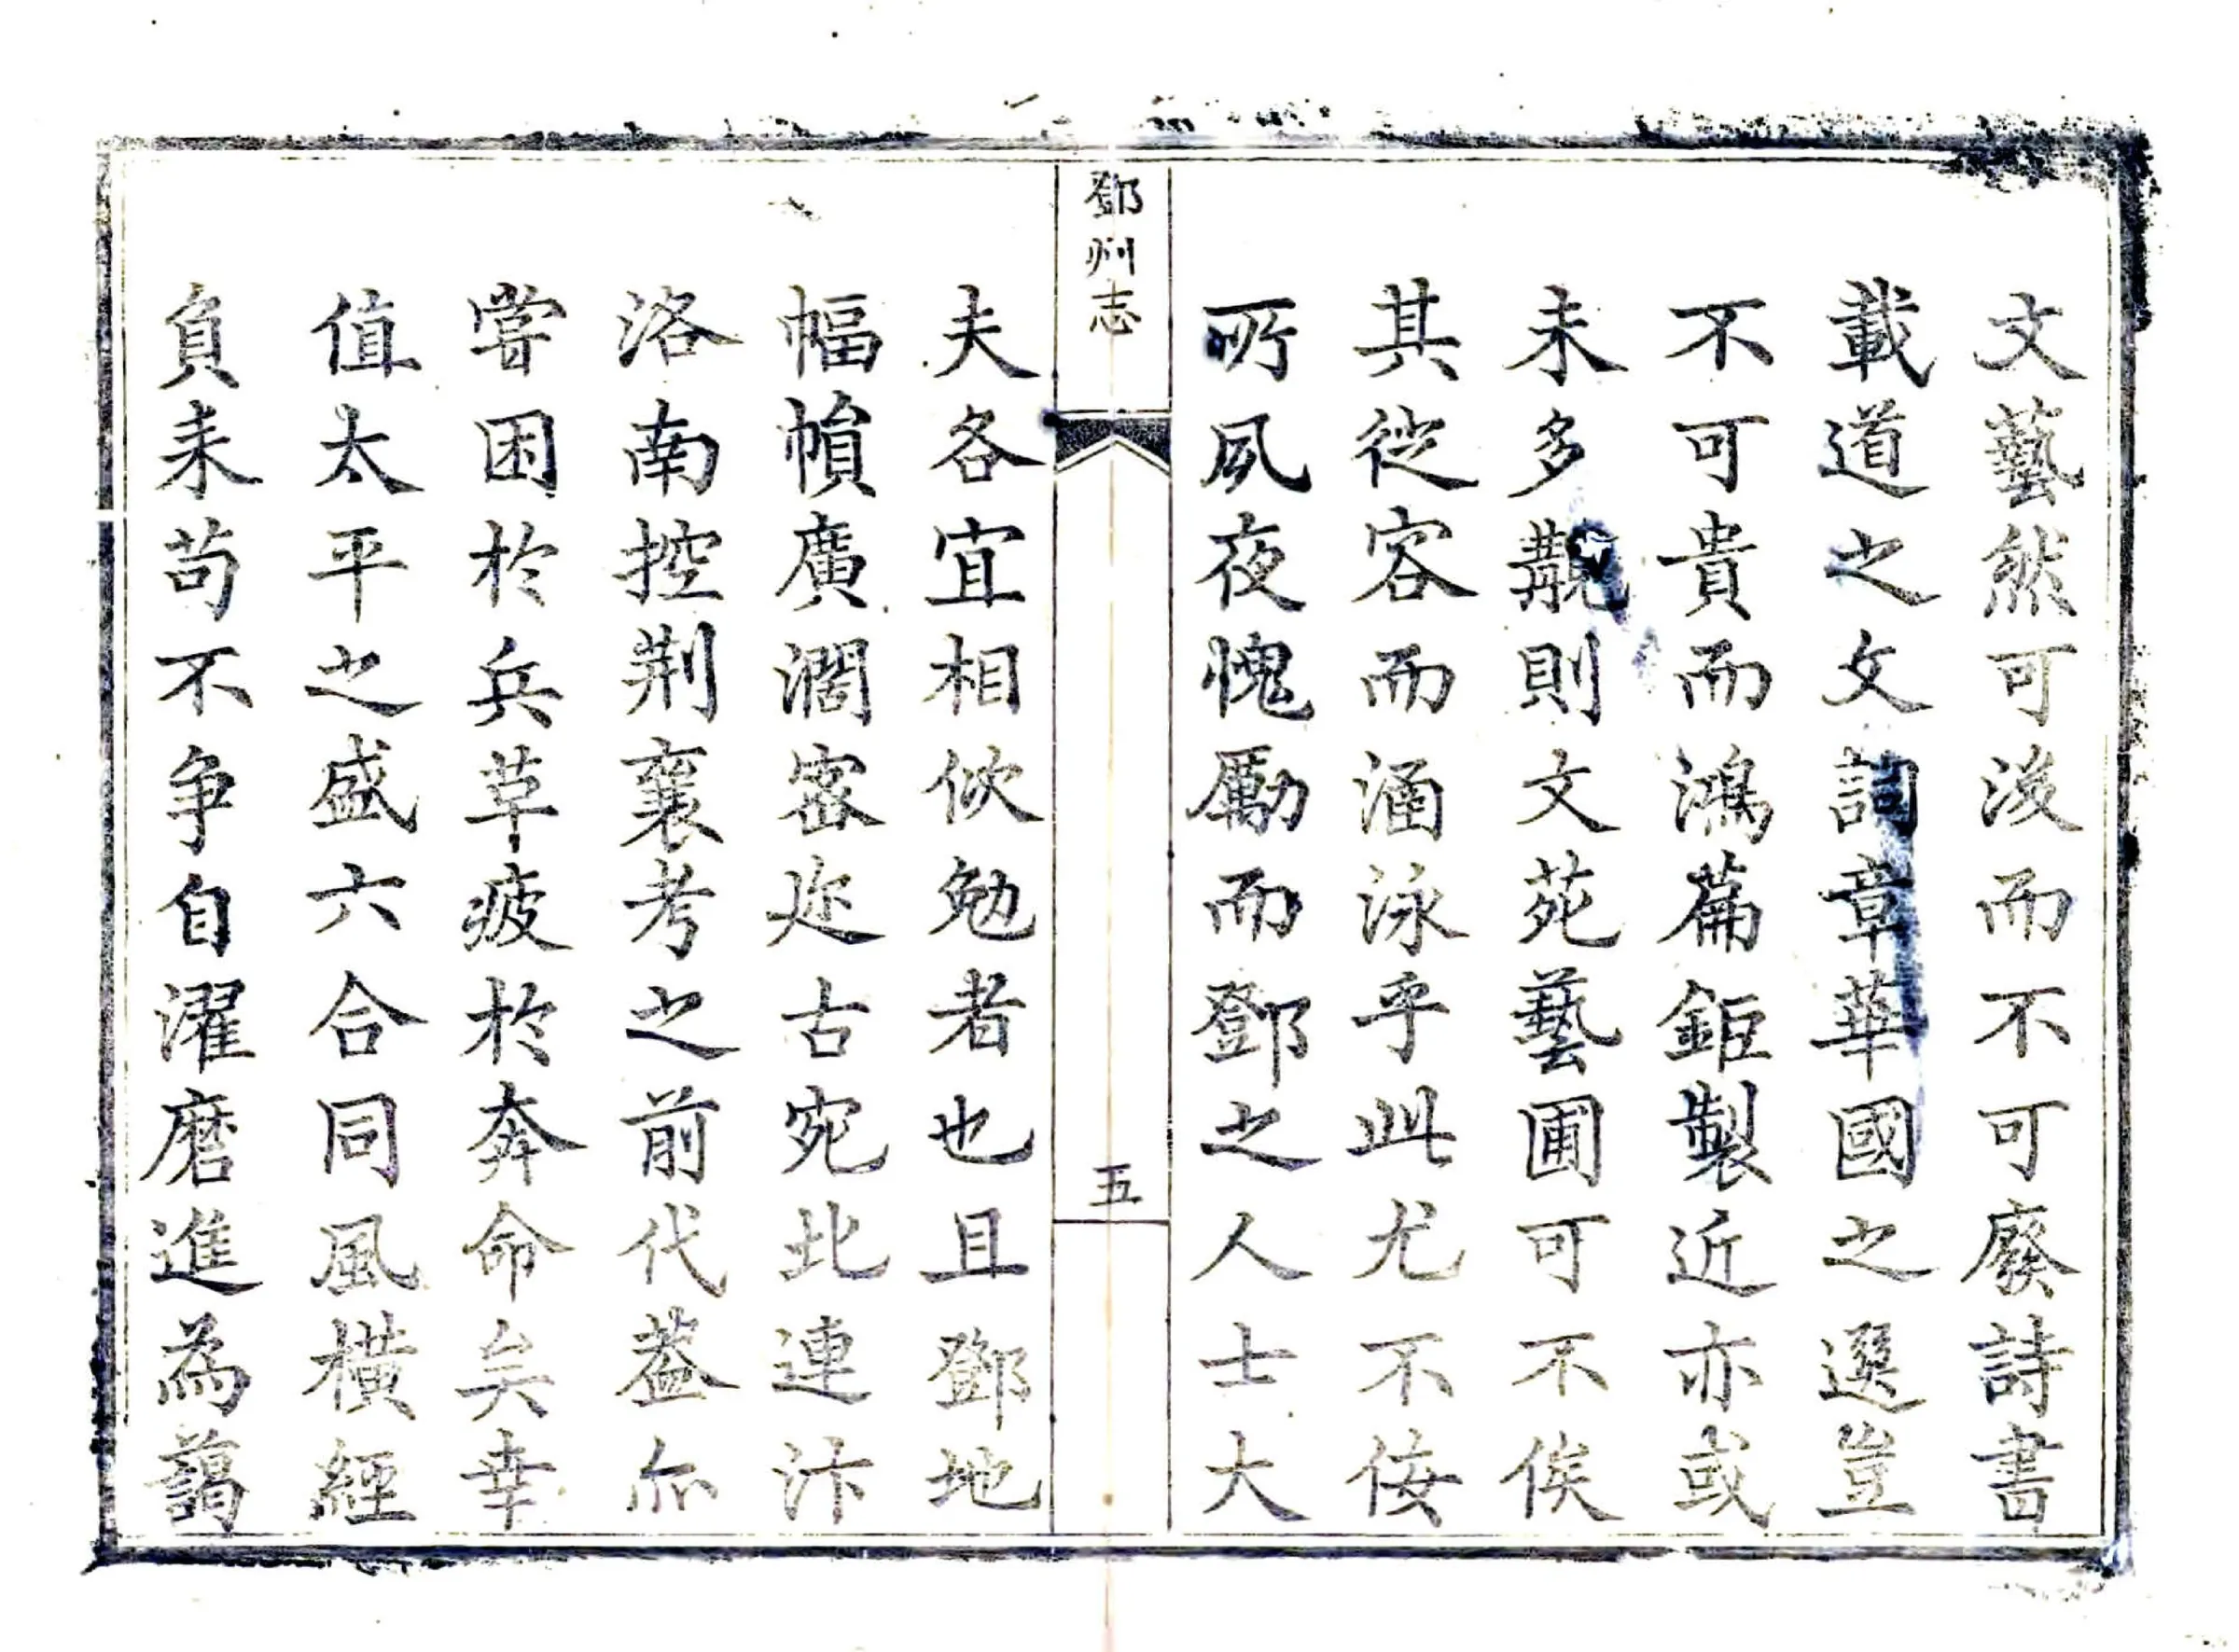 文藝然可後而不可廢詩書
載道之文詞章華國之選豈
不可貴而鴻篇鉅製近亦或
未多覯則文苑藝圃可不俟
其從容而涵泳乎此尤不佞
所夙夜愧勵而鄧之人士大
鄧州志
五
夫各宜相俽勉者也且鄧地
幅幀廣濶密迩古宛北連汴
洛南控荆襄考之前代葢亦
嘗困於兵草疲於奔命矣幸
值太平之盛六合同風橫經
負耒苟不争自濯磨進為藹